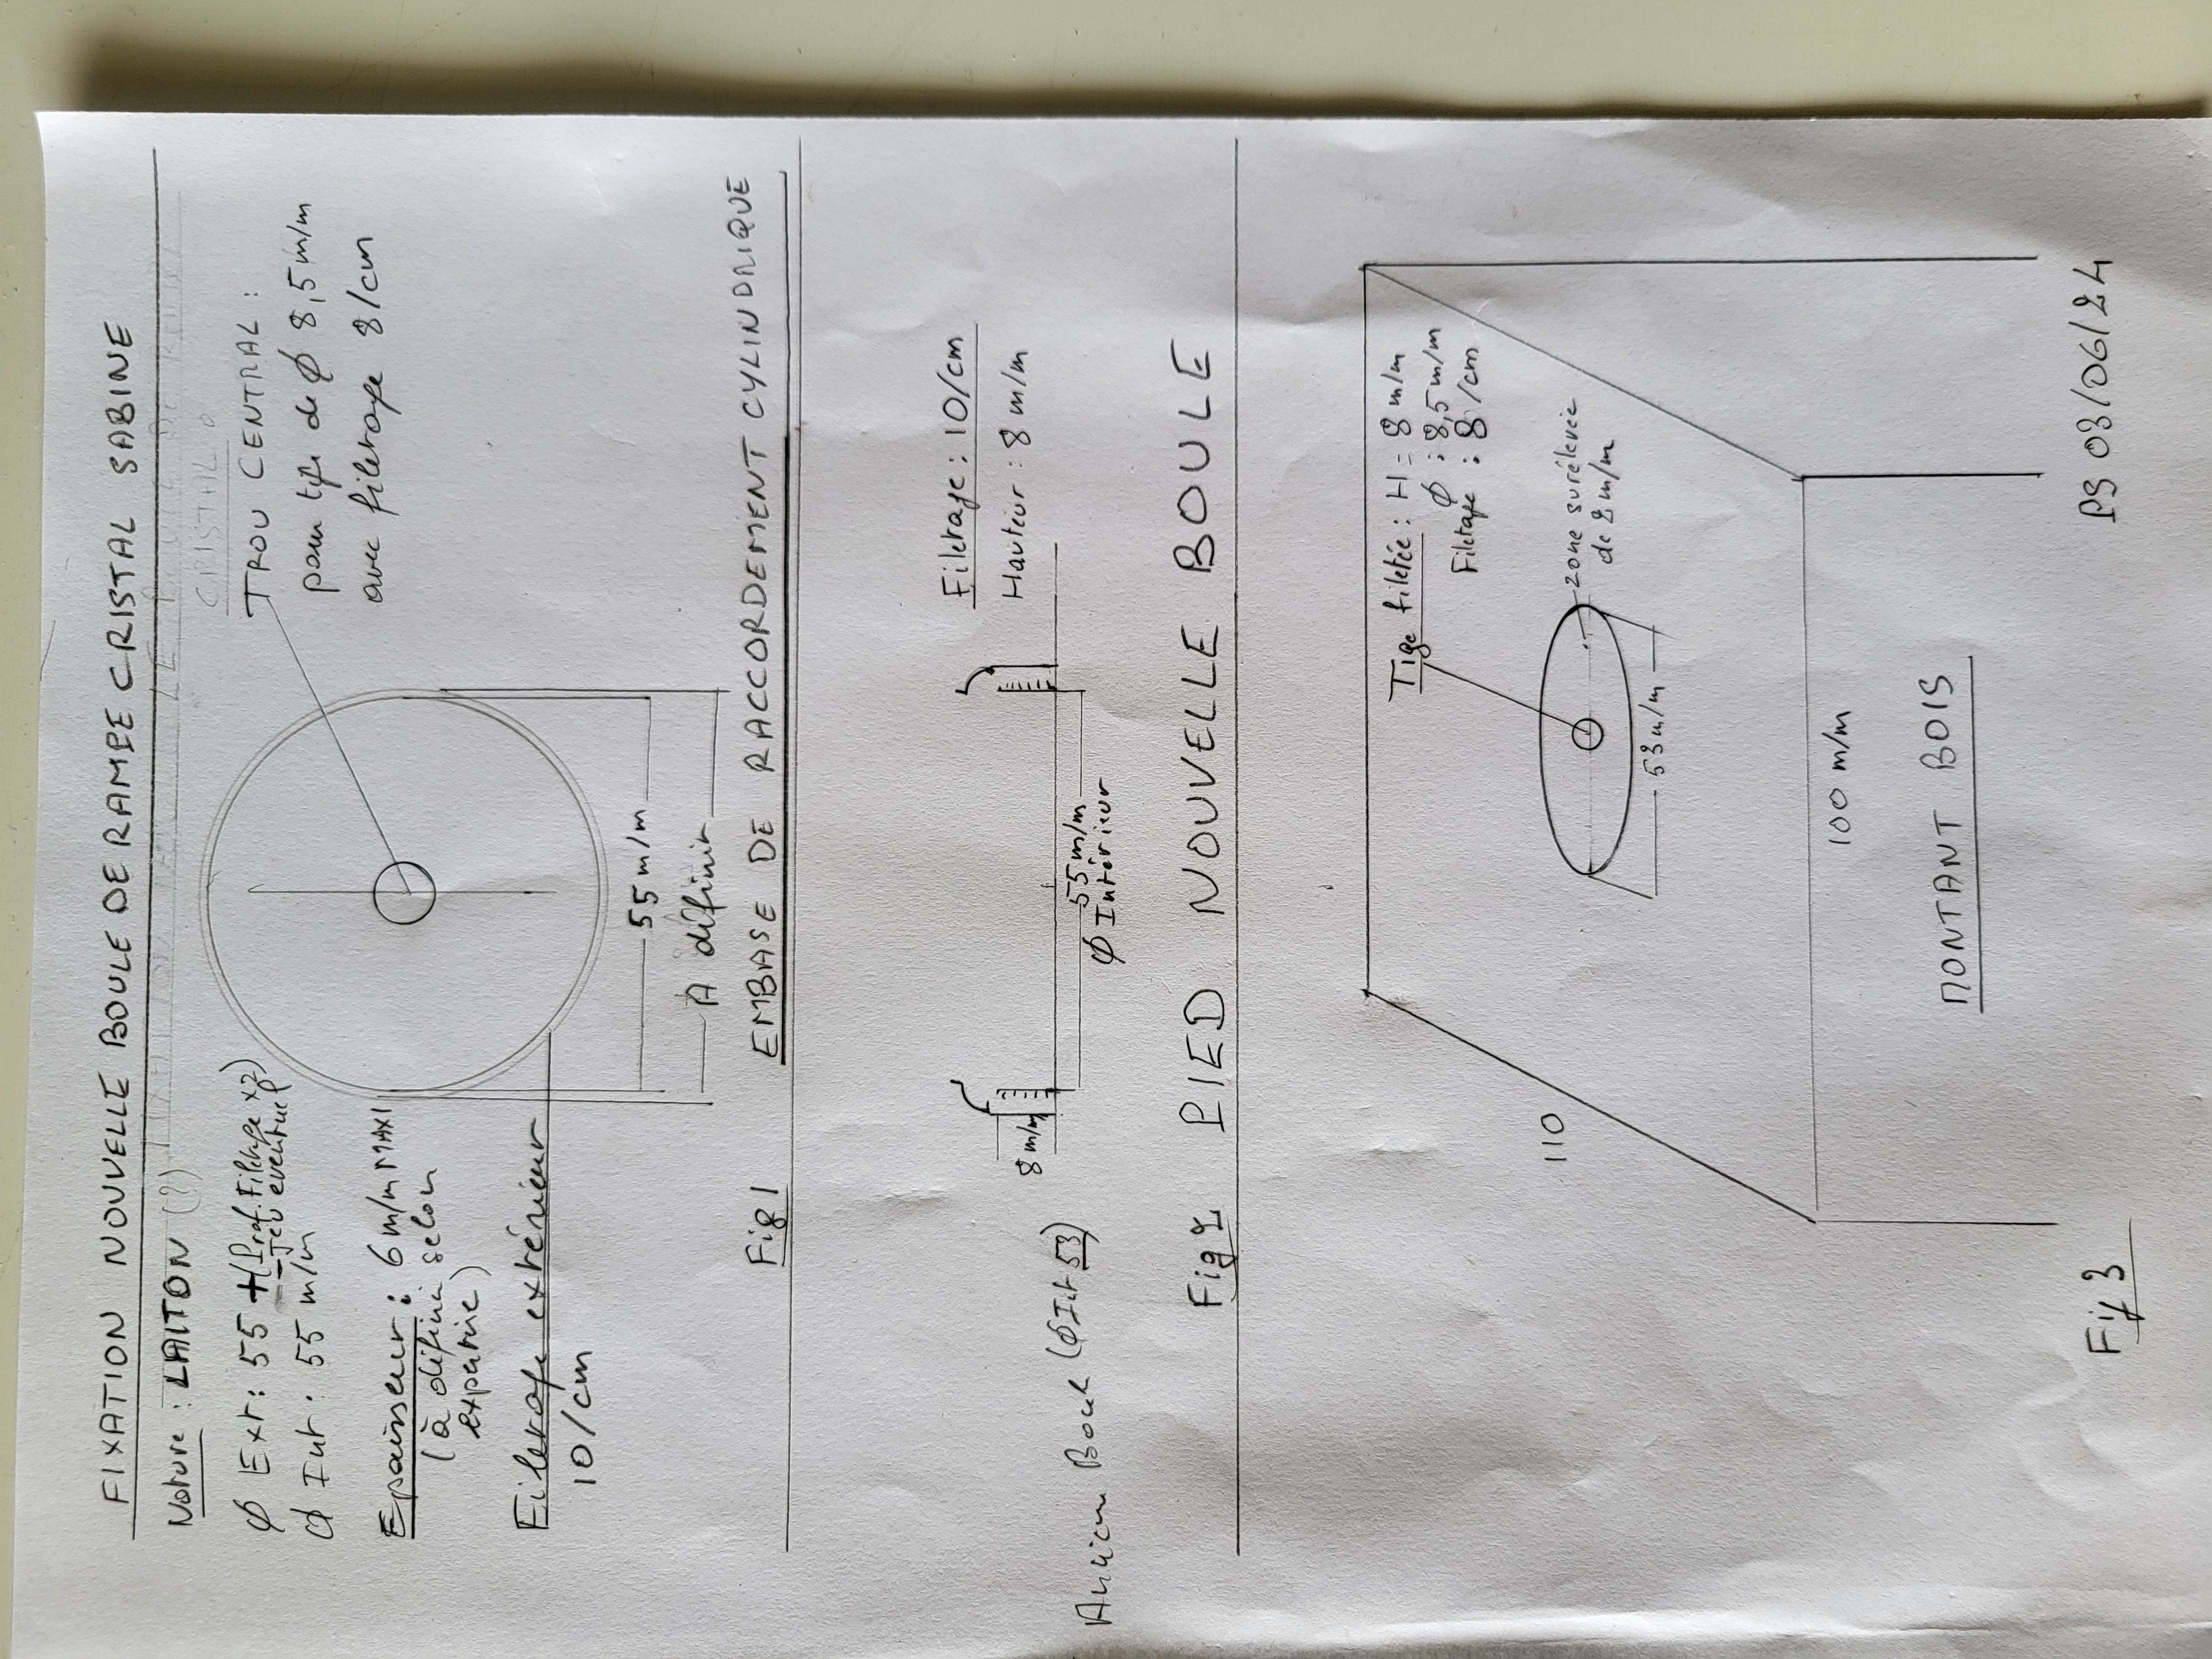 FIXATION NOUVELLE BOULE DE RAMPE CRISTAL SABINE
Nature : LAITON (?)
CRISTAL
Ø Ext : 55 + (Prof. Filetage x2)
- Jeu eventuel
Ø Int : 55 m/m
Epaisseur : 6 m/m MAXI
(à définir selon
expertise)
Filetage extérieur
10/cm
TROU CENTRAL :
pour tige de Ø 8,5 m/m
avec filetage 8/cm
55 m/m
A définir
Fig 1 EMBASE DE RACCORDEMENT CYLINDRIQUE
Filetage : 10/cm
Hauteur : 8 m/m
8 m/m
55 m/m
Ø Intérieur
Ancien Boule (Ø Int 53)
Fig 2 PIED NOUVELLE BOULE
Tige filetée : H = 8 m/m
Ø : 8,5 m/m
Filetage : 8/cm
zone surélevée
de 2 m/m
53 m/m
110
100 m/m
MONTANT BOIS
Fig 3
PS 03/06/24